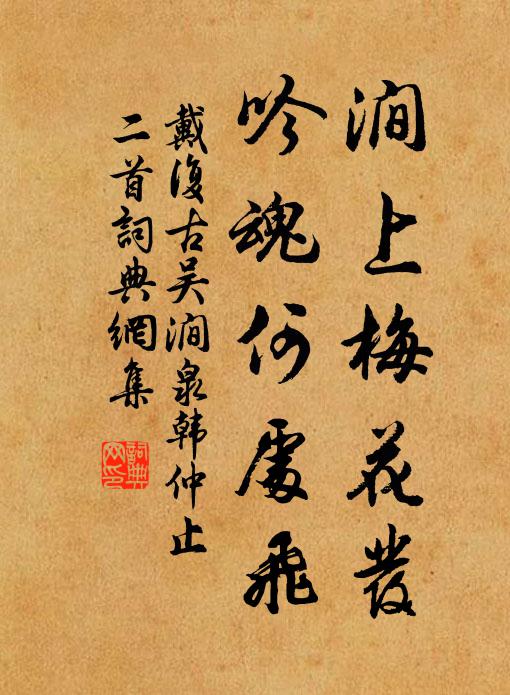 澗上梅花發
吟魂何處飛
戴復古吴澗泉韩仲止
二首詞典網集
詞典
网印